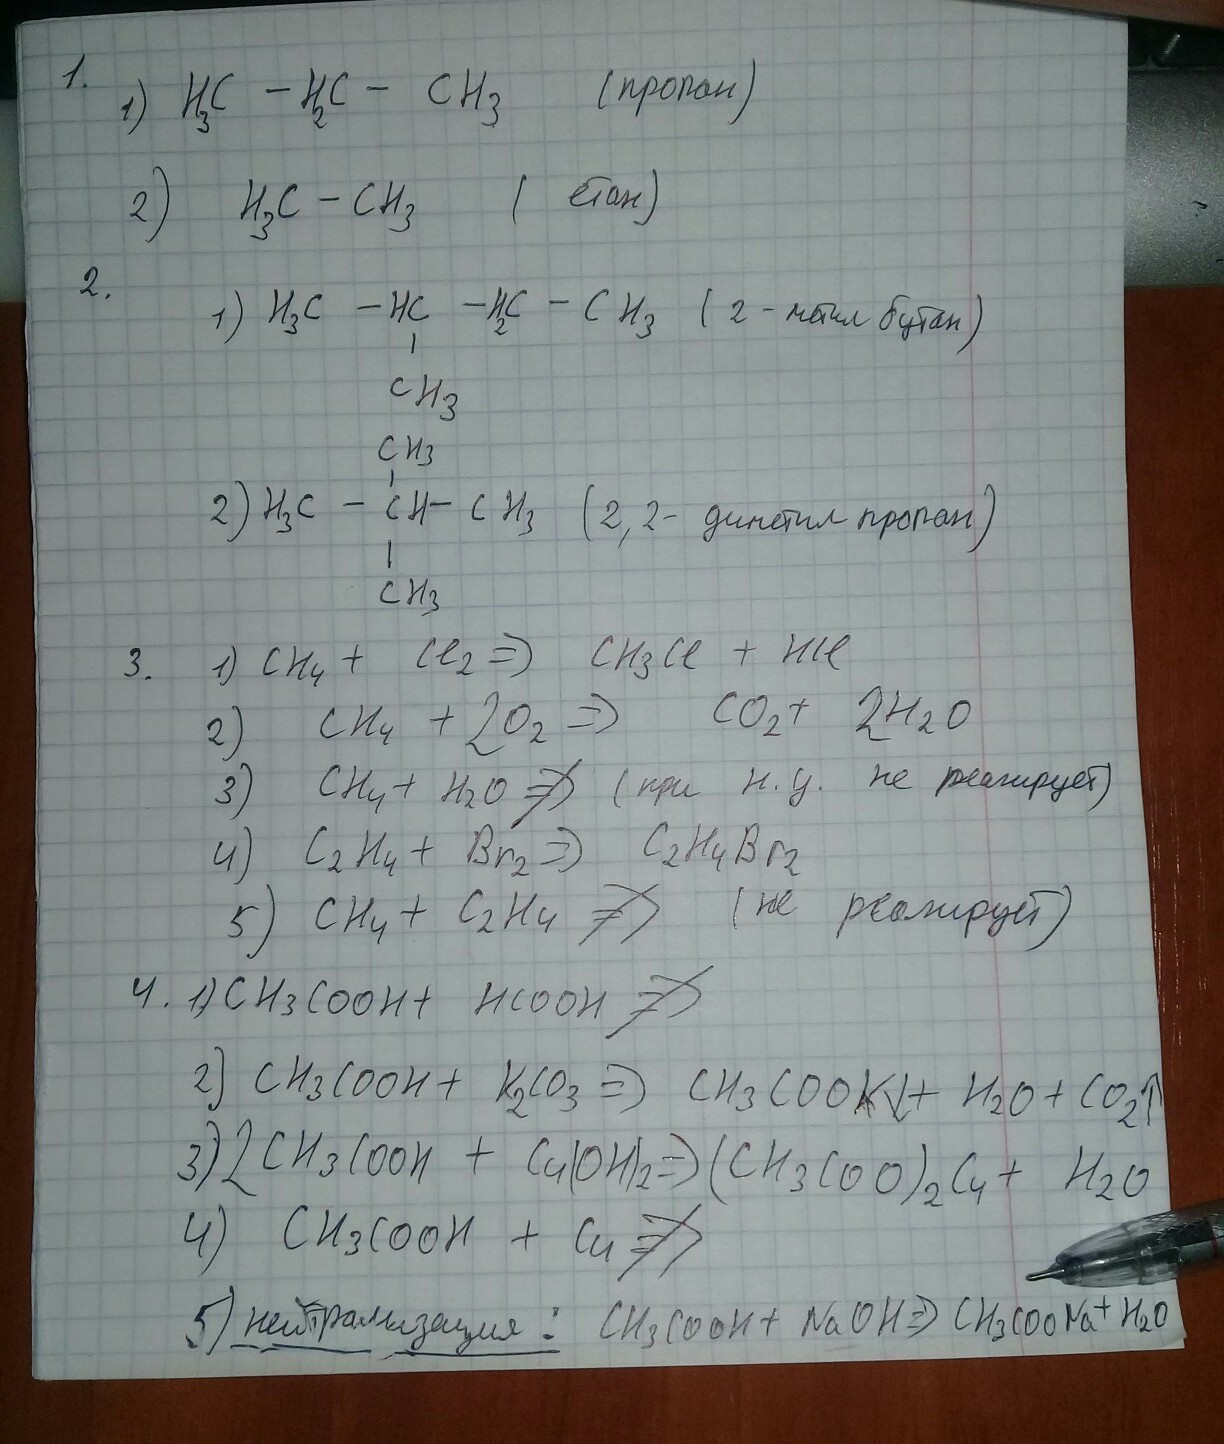 1.
1) H3C – H2C – CH3 (пропан)
2) H3C – CH3 ( етан)
2.
1) H3C – HC – H2C – CH3 ( 2 - метил бутан)
|
CH3
CH3
|
2) H3C – CH – CH3 (2,2 - диметил пропан)
|
CH3
3. 1) CH4 + Cl2 => CH3Cl + HCl
2) CH4 + 2O2 => CO2 + 2H2O
3) CH4 + H2O ≠> (при н.у. не реагирует)
4) C2H4 + Br2 => C2H4Br2
5) CH4 + C2H4 ≠> (не реагирует)
4. 1) CH3COOH + HCOOH ≠>
2) CH3COOH + K2CO3 => CH3COOK↓ + H2O + CO2↑
3) 2CH3COOH + Cu(OH)2 => (CH3COO)2Cu + H2O
4) CH3COOH + Cu ≠>
5) нейтрализация : CH3COOH + NaOH => CH3COONa + H2O